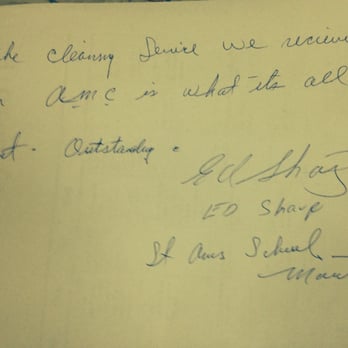 he cleaning Service we recieve
AMC is what its all
t. Outstanding.
Ed Sharp
ED Sharp
St Ann's School